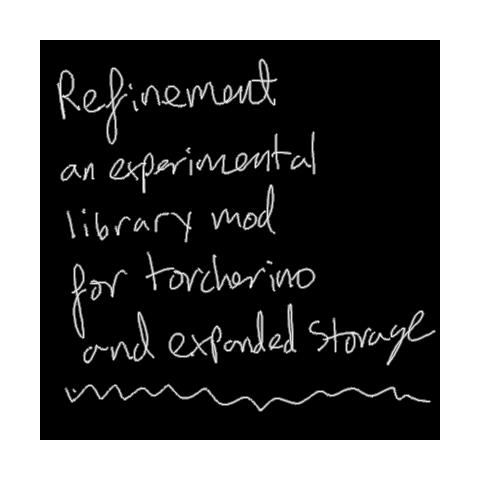 Refinement
an experimental
library mod
for torcherino
and expanded storage